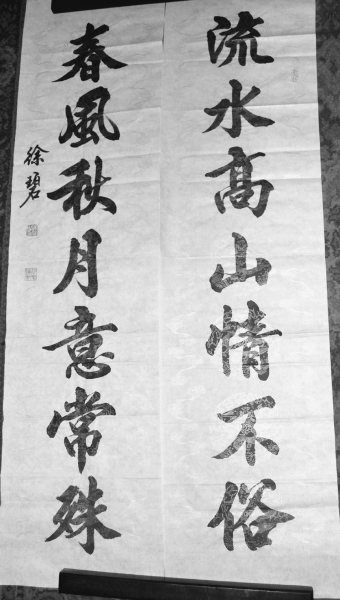 流水高山情不俗
春風秋月意常殊
徐碧